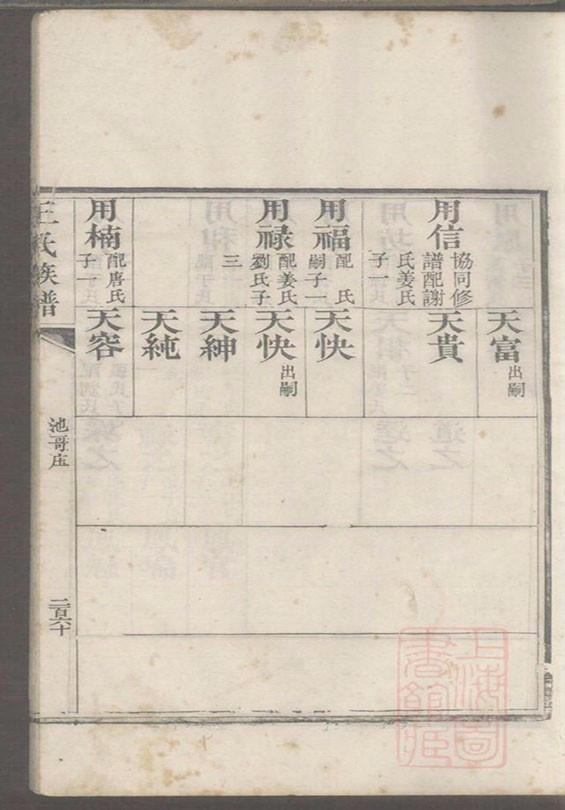 天富 出嗣
用信 協同修譜配謝氏姜氏子一
天貴
用福 配 氏嗣子一
天快
用祿 配姜氏劉氏子三
天快 出嗣
天紳
天純
用楠 配唐氏子一
天容
王氏族譜
池哥庄
二百六十
上海圖書館藏